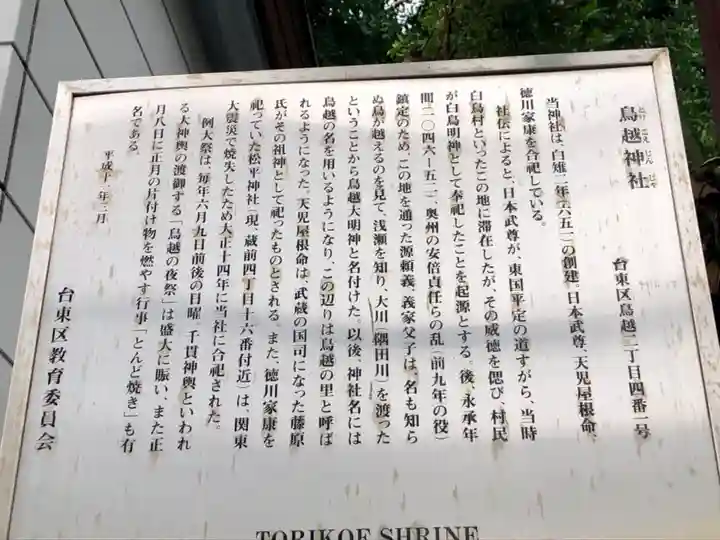 鳥越神社
とりこえじんじゃ
台東区鳥越二丁目四番一号
当神社は、白雉二年(六五一)の創建。日本武尊、天児屋根命、
徳川家康を合祀している。
社伝によると、日本武尊が、東国平定の道すがら、当時
白鳥村といったこの地に滞在したが、その威徳を偲び、村民
が白鳥明神として奉祀したことを起源とする。後、永承年
間(一〇四六ー五二)、奥州の安倍貞任らの乱(前九年の役)
鎮定のため、この地を通った源頼義、義家父子は、名も知ら
ぬ鳥が越えるのを見て、浅瀬を知り、大川(隅田川)を渡った
ということから鳥越大明神と名付けた。以後、神社名には
鳥越の名を用いるようになり、この辺りは鳥越の里と呼ば
れるようになった。天児屋根命は、武蔵の国司になった藤原
氏がその祖神として祀ったものとされる。また、徳川家康を
祀っていた松平神社(現、蔵前四丁目十六番付近)は、関東
大震災で焼失したため大正十四年に当社に合祀された。
例大祭は、毎年六月九日前後の日曜。千貫神輿といわれ
る大神輿の渡御する「鳥越の夜祭」は盛大に賑い、また正
月八日に正月の片付け物を燃やす行事「とんど焼き」も有
名である。
平成十一年三月
台東区教育委員会
TORIKOE SHRINE